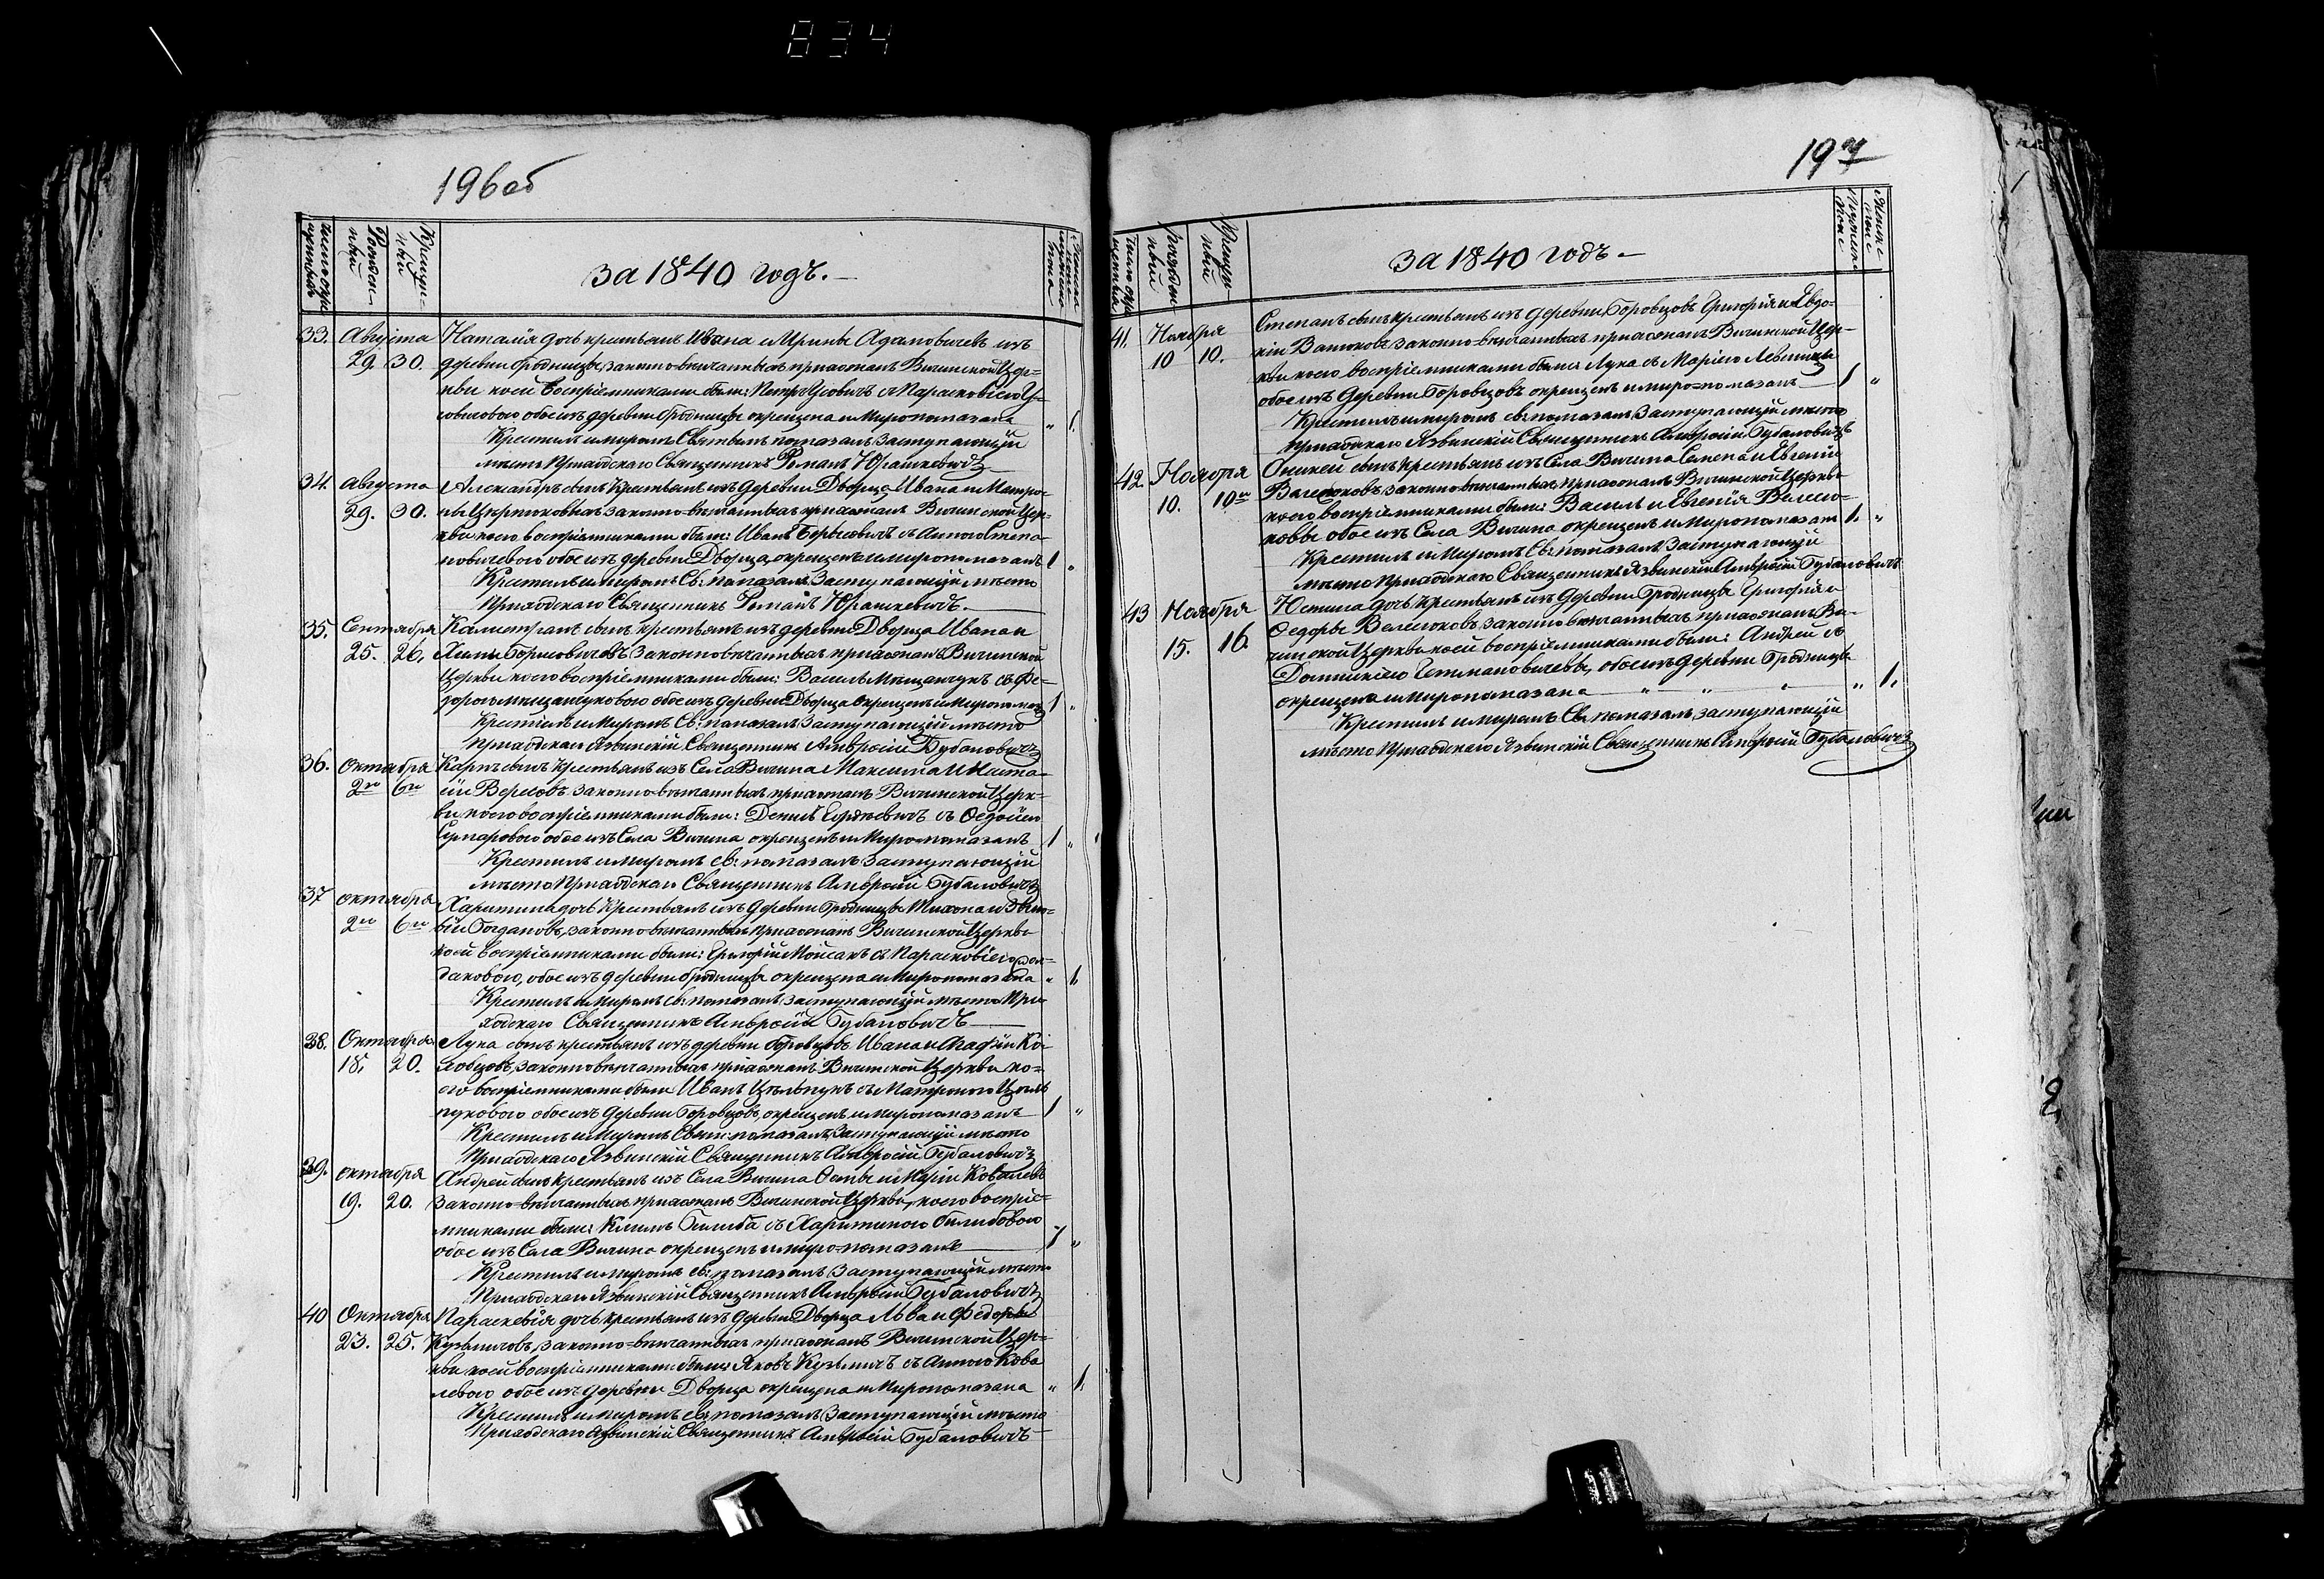 834
196об
Рожден-
ный
Крещен-
ный
за 1840 годъ.—
33. Августа Наталія дочь крестьянъ Ивана и Ирины Адамовичевъ изъ
29. 30. деревни Гродницы законно-вѣнчанныхъ прихожанъ Вичинской Цер-
кви коей воспріемниками были: Петръ Усовичъ съ Парасковіею У-
совичовою обое изъ деревни Гродницы окрещена и Миропомазана „ 1.
Крестилъ и миромъ Святымъ помазалъ заступающій
мѣсто Приходскаго Священникъ Романъ Юрашкевичъ
34. Августа Александръ сынъ Крестьянъ изъ деревни Дворца Ивана и Матро-
29. 30. ны законно-вѣнчанныхъ прихожанъ Вичинской Цер-
кви коего воспріемниками были: Иванъ Борисовичъ съ Анною Степа-
новичевою обое изъ деревни Дворца, окрещенъ и миропомазанъ 1 „
Крестилъ и миромъ Св: помазалъ заступающій мѣсто
Приходскаго Священникъ Романъ Юрашкевичъ.
35. Сентября Калистратъ сынъ крестьянъ изъ деревни Дворца Ивана и
25. 26. Борисовичовъ законновѣнчанныхъ прихожанъ Вичинской
Церкви коего воспріемниками были: Василь Мѣщанчукъ съ Фе-
дорою Мѣщанчуковою обое изъ деревни Дворца окрещенъ и Миропомаз 1 „
Крестилъ и Миромъ Св: помазалъ заступающій мѣсто
Приходскаго Язвинскій Священникъ Амвросій Бубановичъ
36. Октября Карпъ сынъ крестьянъ изъ Села Вичина Максима и Наста-
2го 6го сіи Вересовъ законно-вѣнчанныхъ прихожанъ Вичинской Церк-
ви коего воспріемниками были: Денисъ съ Ѳедосіею
обое изъ Села Вичина окрещенъ и Миропомазанъ 1 „
Крестилъ и Миромъ св: помазалъ заступающій
мѣсто Приходскаго Священникъ Амвросій Бубановичъ
37 октября Харитина дочь Крестьянъ изъ деревни Гродницы Тихона и
2го 6го Богдановъ, законно вѣнчанныхъ прихожанъ Вичинской Церкви
коей воспріемниками были: Григорій Мойсакъ съ Парасковіею
обое изъ деревни Гродницы окрещена и Миропомазана „ 1.
Крестилъ и Миромъ св: помазалъ, заступающій мѣсто При-
ходскаго Священникъ Амвросій Бубановичъ
38. Октября Лука сынъ крестьянъ изъ деревни Боровцовъ Ивана и Агафіи
18. 20. законновѣнчанныхъ прихожанъ Вичинской Церкви ко-
его воспріемниками были Иванъ съ Матроною
обое изъ деревни Боровцовъ, окрещенъ и миропомазанъ 1 „
Крестилъ и Миромъ Свят: помазалъ, Заступающій мѣсто
Приходскаго Язвинскій Священникъ Амвросій Бубановичъ
39. октября Андрей сынъ Крестьянъ изъ Села Вичина и Маріи Ковалевъ
19. 20. законно-вѣнчанныхъ прихожанъ Вичинской Церкви, коего воспріе-
мниками были: Климъ съ Харитиною
обое изъ Села Вичина окрещенъ и миро-помазанъ 1 „
Крестилъ и миромъ св: помазалъ Заступающій мѣсто
Приходскаго Язвинскій Священникъ Амвросій Бубановичъ
40 Октября Параскевія дочь крестьянъ изъ деревни Дворца Льва и Федоры
23. 25. Кузьмичовъ, законно-вѣнчанныхъ прихожанъ Вичинской Цер-
кви коей воспріемниками были Яковъ Кузьмичъ съ Анною Кова
левою обое изъ деревни Дворца окрещена и Миропомазана „ 1.
Крестилъ и миромъ св: помазалъ Заступающій мѣсто
Приходскаго Язвинскій Священникъ Амвросій Бубановичъ
197
Рожден-
ный
Крещен-
ный
за 1840 годъ.—
41. Ноября Степанъ сынъ крестьянъ изъ деревни Боровцовъ Григорія и Евдо-
10 10. кіи законно-вѣнчанныхъ прихожанъ Вичинской Цер-
кви коего воспріемниками были Лука съ Маріею
обое изъ Деревни Боровцовъ окрещенъ и миро-помазанъ 1 „
Крестилъ и миромъ св: помазалъ Заступающій мѣсто
Приходскаго Язвинскій Священникъ Амвросій Бубановичъ
42. Ноября сынъ крестьянъ изъ Села Вичина Семена и Евгеніи
10. 10го Велесюковъ законно-вѣнчанныхъ прихожанъ Вичинской Церкви
коего воспріемниками были: Василь и Евгенія Велесю-
ковы обое изъ Села Вичина окрещенъ и Миропомазанъ 1. „
Крестилъ и Миромъ Св: помазалъ Заступающій
мѣсто Приходскаго Священникъ Язвинскій Амвросій Бубановичъ
43 Ноября Юстина дочь Крестьянъ изъ деревни Гродницы Григорія и
15. 16. Ѳедоры Велесюковъ, законно вѣнчанныхъ прихожанъ Ви-
чинской Церкви коей воспріемниками были: Андрей съ
обое изъ деревни Гродницы
окрещена и Миропомазана „ „ „ „ 1.
Крестилъ и миромъ Св: помазалъ, заступающій
мѣсто Приходскаго Язвинскій Священникъ Амвросій Бубановичъ